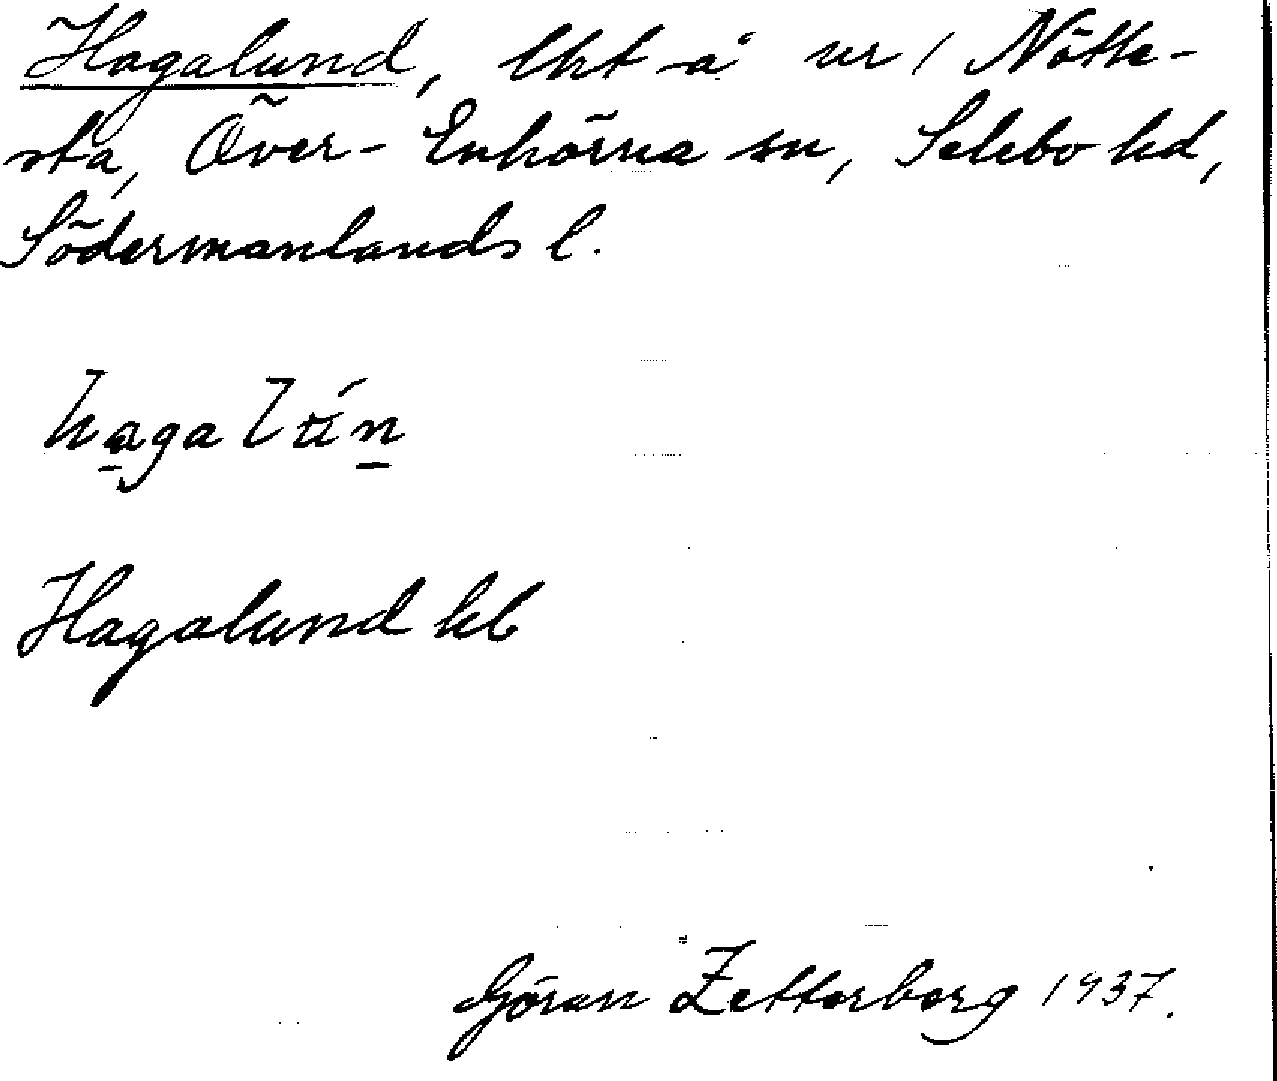 Hagalund, lht å nr 1 Nötte-
sta, Över-Enhörna sn, Selebo hd,
Södermanlands l.
Hagalund kb
Göran Zetterberg 1937.